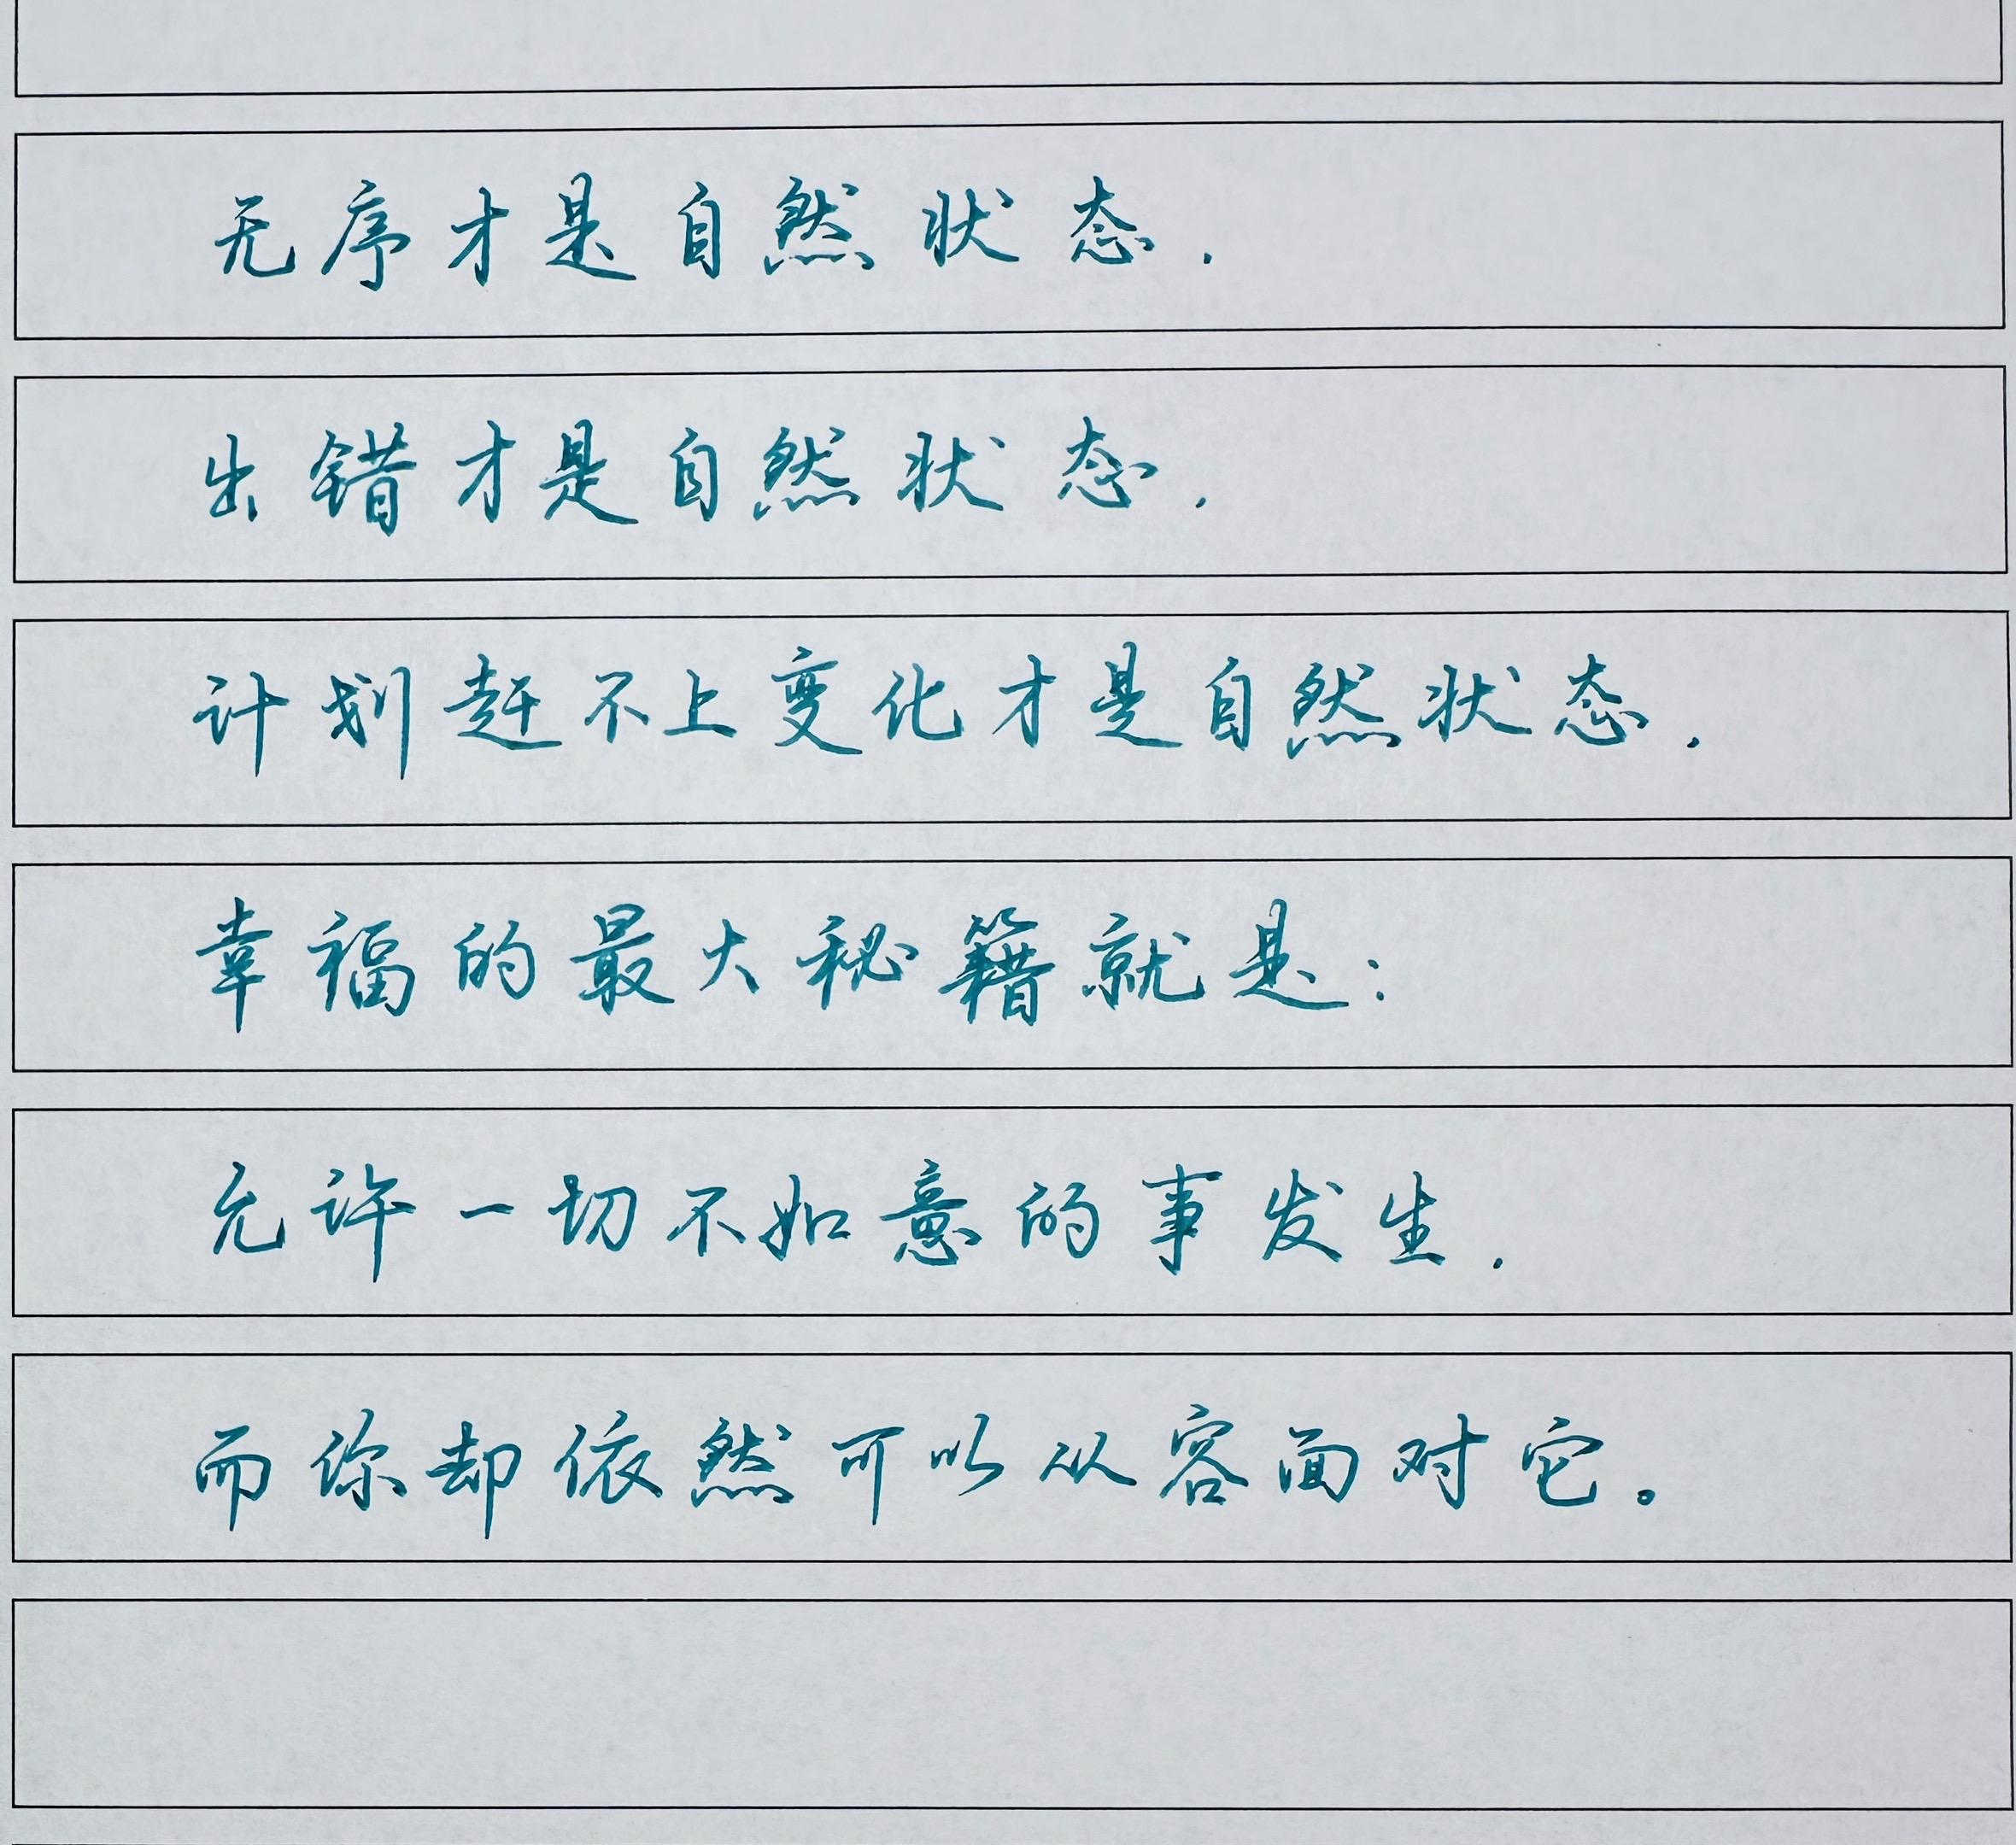 无序才是自然状态.
出错才是自然状态.
计划赶不上变化才是自然状态.
幸福的最大秘籍就是:
允许一切不如意的事发生.
而你却依然可以从容面对它。